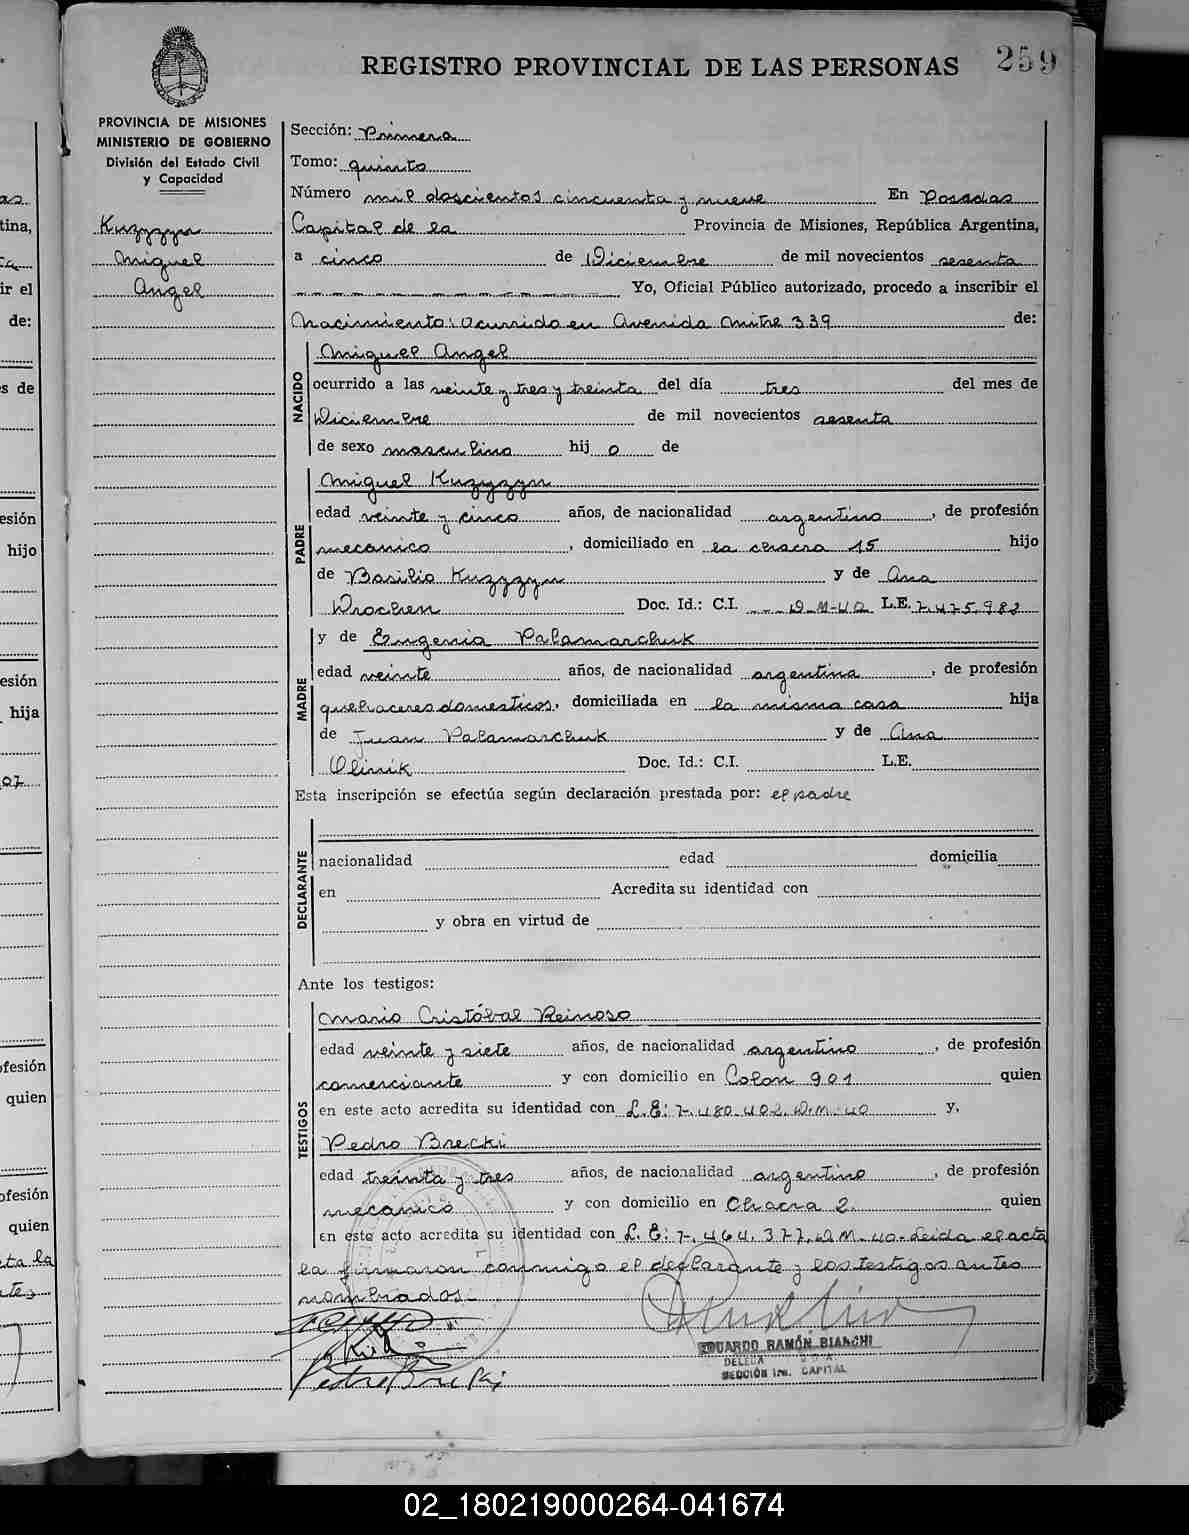 REGISTRO PROVINCIAL DE LAS PERSONAS 259
PROVINCIA DE MISIONES
MINISTERIO DE GOBIERNO
División del Estado Civil
y Capacidad
Kuzyzyn
Miguel
Angel
Sección: Primera
Tomo: quinto
Número mil doscientos cincuenta y nueve En Posadas
Capital de la Provincia de Misiones, República Argentina,
a cinco de Diciembre de mil novecientos sesenta
Yo, Oficial Público autorizado, procedo a inscribir el
Nacimiento: ocurrido en Avenida Mitre 339 de:
NACIDO
Miguel Angel
ocurrido a las veinte y tres y treinta del día tres del mes de
Diciembre de mil novecientos sesenta
de sexo masculino hijo de
PADRE
Miguel Kuzyzyn
edad veinte y cinco años, de nacionalidad argentino, de profesión
mecanico, domiciliado en la chacra 15 hijo
de Basilio Kuzyzyn y de Ana
Drochen Doc. Id.: C.I. D-M-40 L.E. 7.475.983
y de Eugenia Palamarchuk
MADRE
edad veinte años, de nacionalidad argentina, de profesión
quehaceres domesticos, domiciliada en la misma casa hija
de Juan Palamarchuk y de Ana
Olinik Doc. Id.: C.I. L.E.
Esta inscripción se efectúa según declaración prestada por: el padre
DECLARANTE
nacionalidad edad domicilia
en Acredita su identidad con
y obra en virtud de
Ante los testigos:
TESTIGOS
Mario Cristóbal Reinoso
edad veinte y siete años, de nacionalidad argentino, de profesión
comerciante y con domicilio en Colon 901 quien
en este acto acredita su identidad con L.E: 7.480.402. D.M.40 y,
Pedro Brecki
edad treinta y tres años, de nacionalidad argentino, de profesión
mecanico y con domicilio en Chacra 2. quien
en este acto acredita su identidad con L.E: 7.464.377. D.M.40. Leida el acta
la firmaron conmigo el declarante y los testigos antes
nombrados.
Pedro Brecki
EDUARDO RAMÓN BIANCHI
SECCIÓN 1ra. CAPITAL
02_180219000264-041674